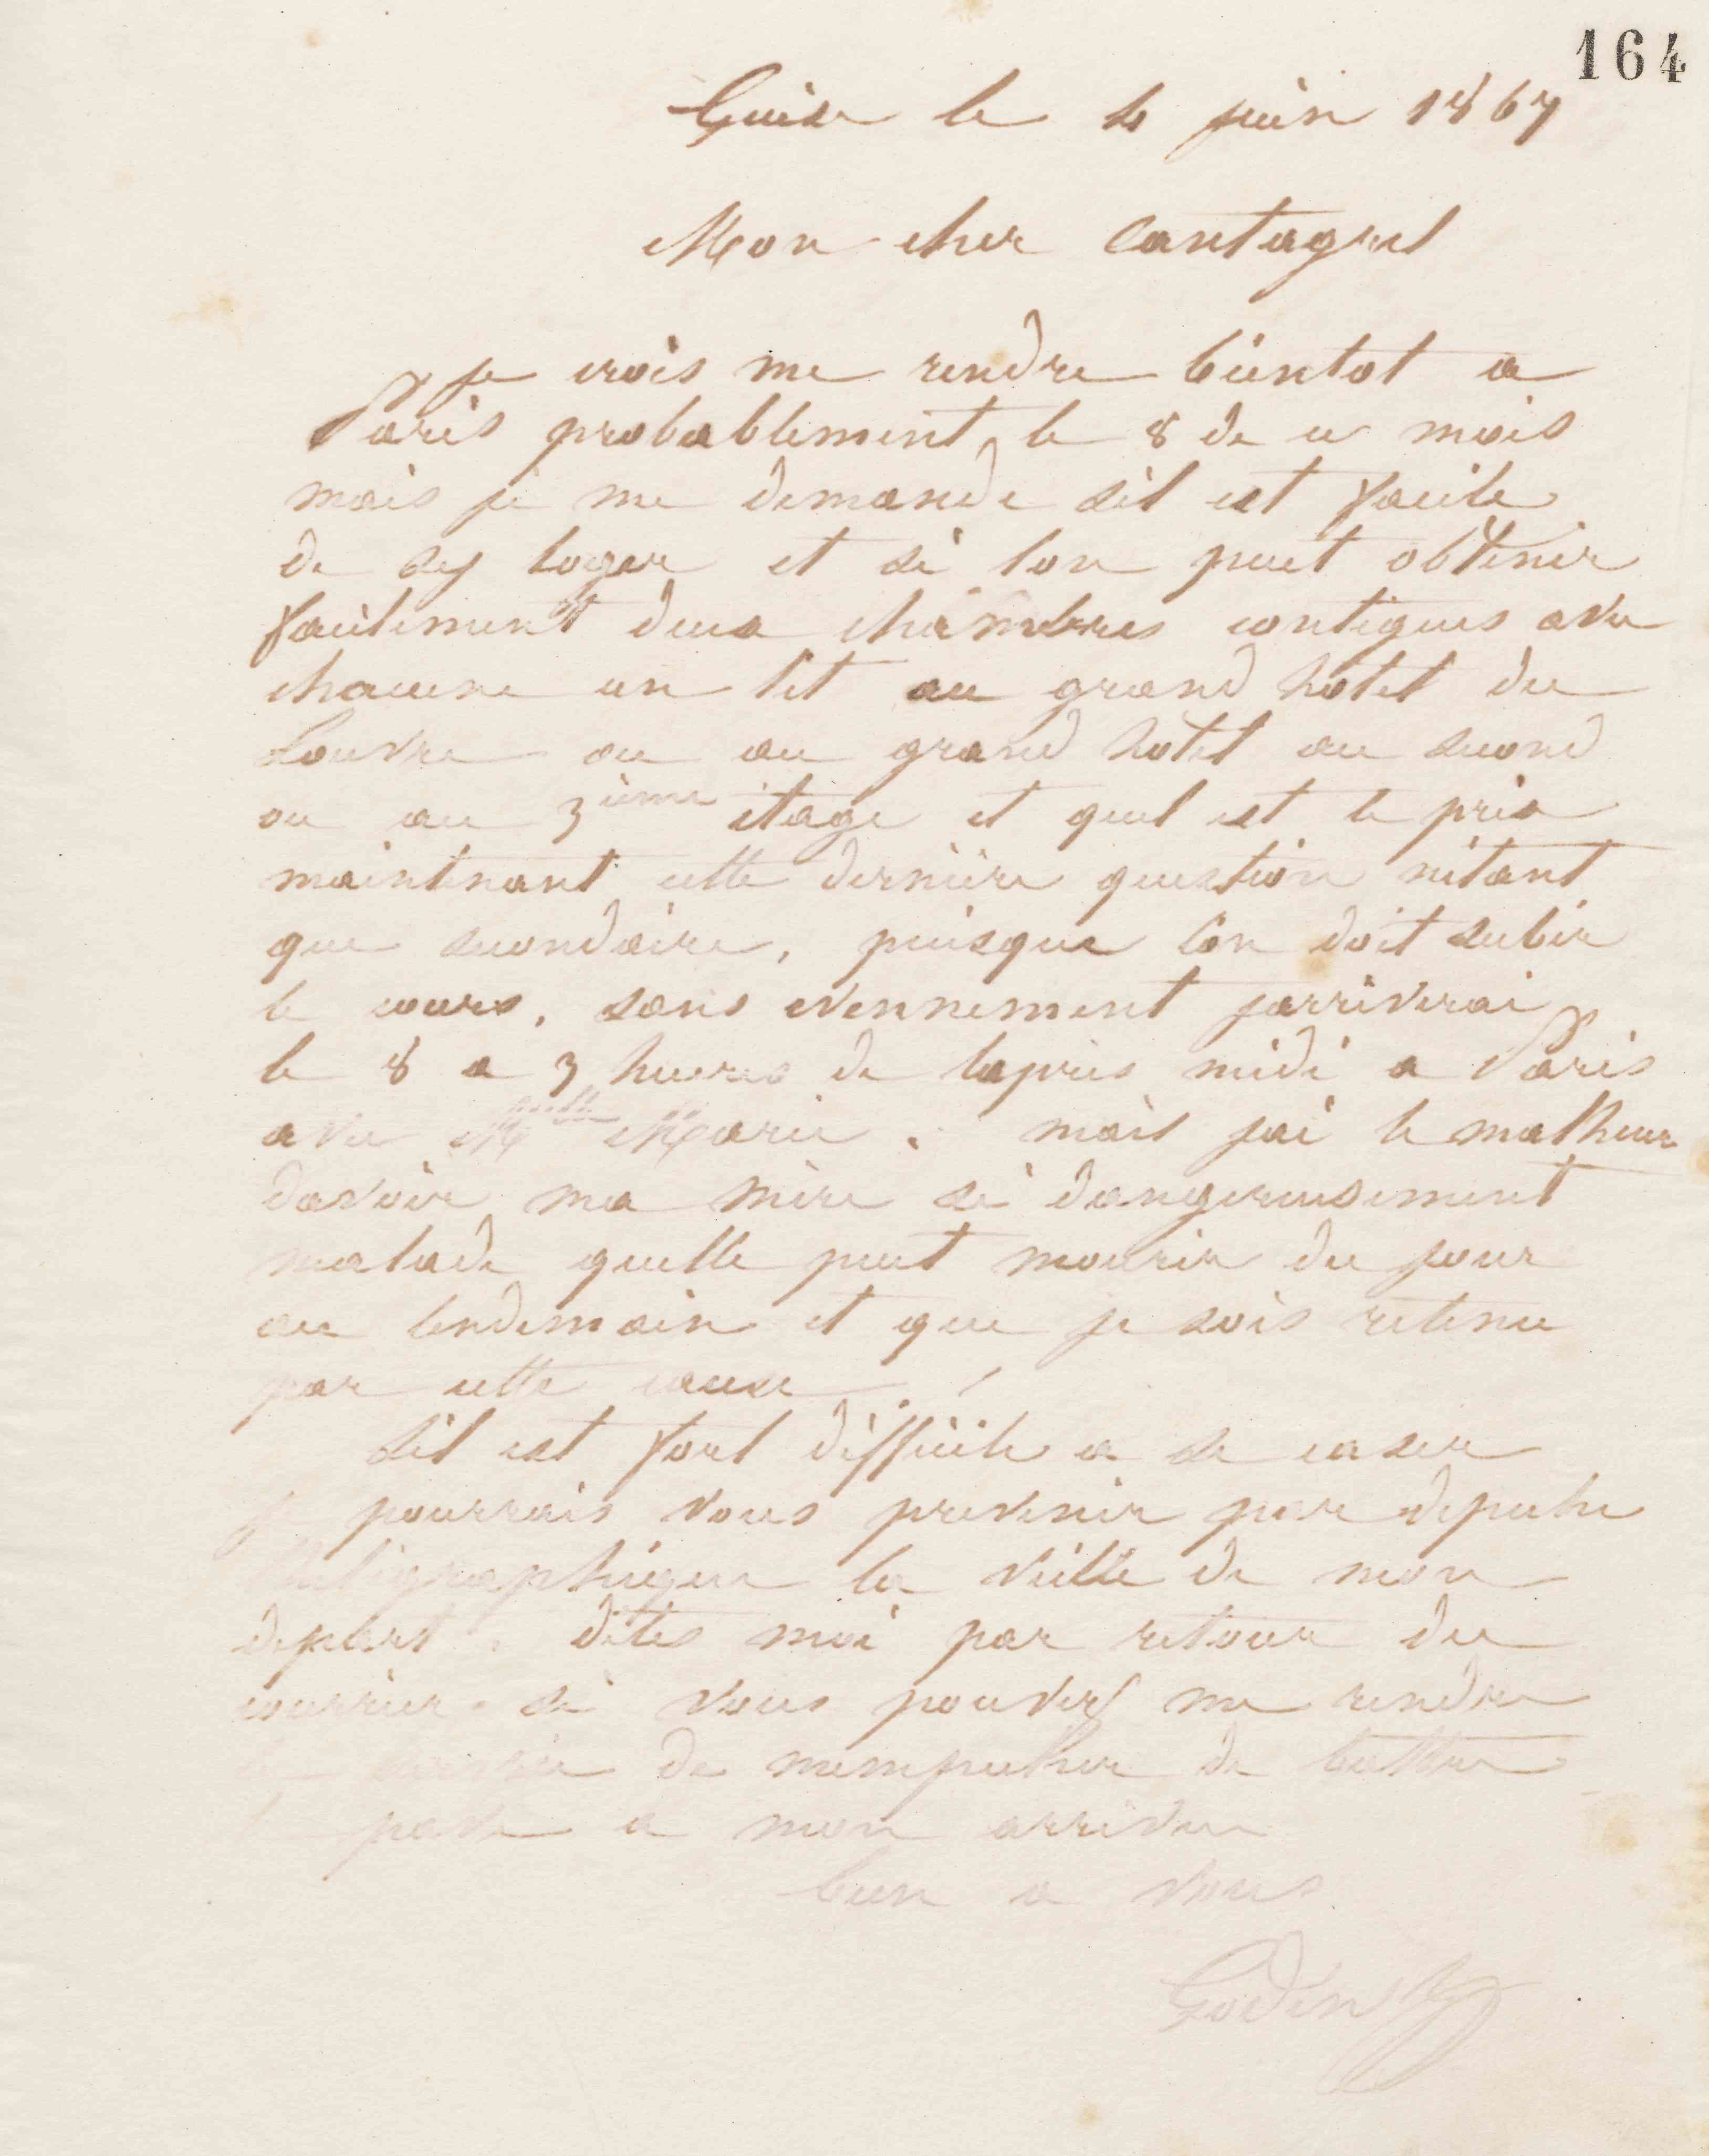 164
Guise le 4 juin 1867
Mon cher Cantagrel
je crois me rendre bientot a
Paris probablement le 8 de ce mois
mais je me demande sil est facile
de sy loger et si lon peut obtenir
facilement deux chambres contigues avec
chacune un lit au grand hotel du
Louvre ou au grand hotel au second
ou au 3ième étage et quel est le prix
maintenant cette dernière question nétant
que secondaire, puisque lon doit subir
le cours. sans evennement jarriverai
le 8 a 3 heures de laprès midi a Paris
avec Melle Marie. mais jai le malheur
davoir ma mère si dangereusement
malade quelle peut mourir du jour
au lendemain et que je sois retenu
par cette cause.
Sil est fort difficile a se caser
je pourrais vous prevenir par depeche
télégraphique la veille de mon
depart. dites moi par retour du
courrier si vous pouvez me rendre
de mempecher de battre
pavé a mon arrivée
bien a vous
Godin